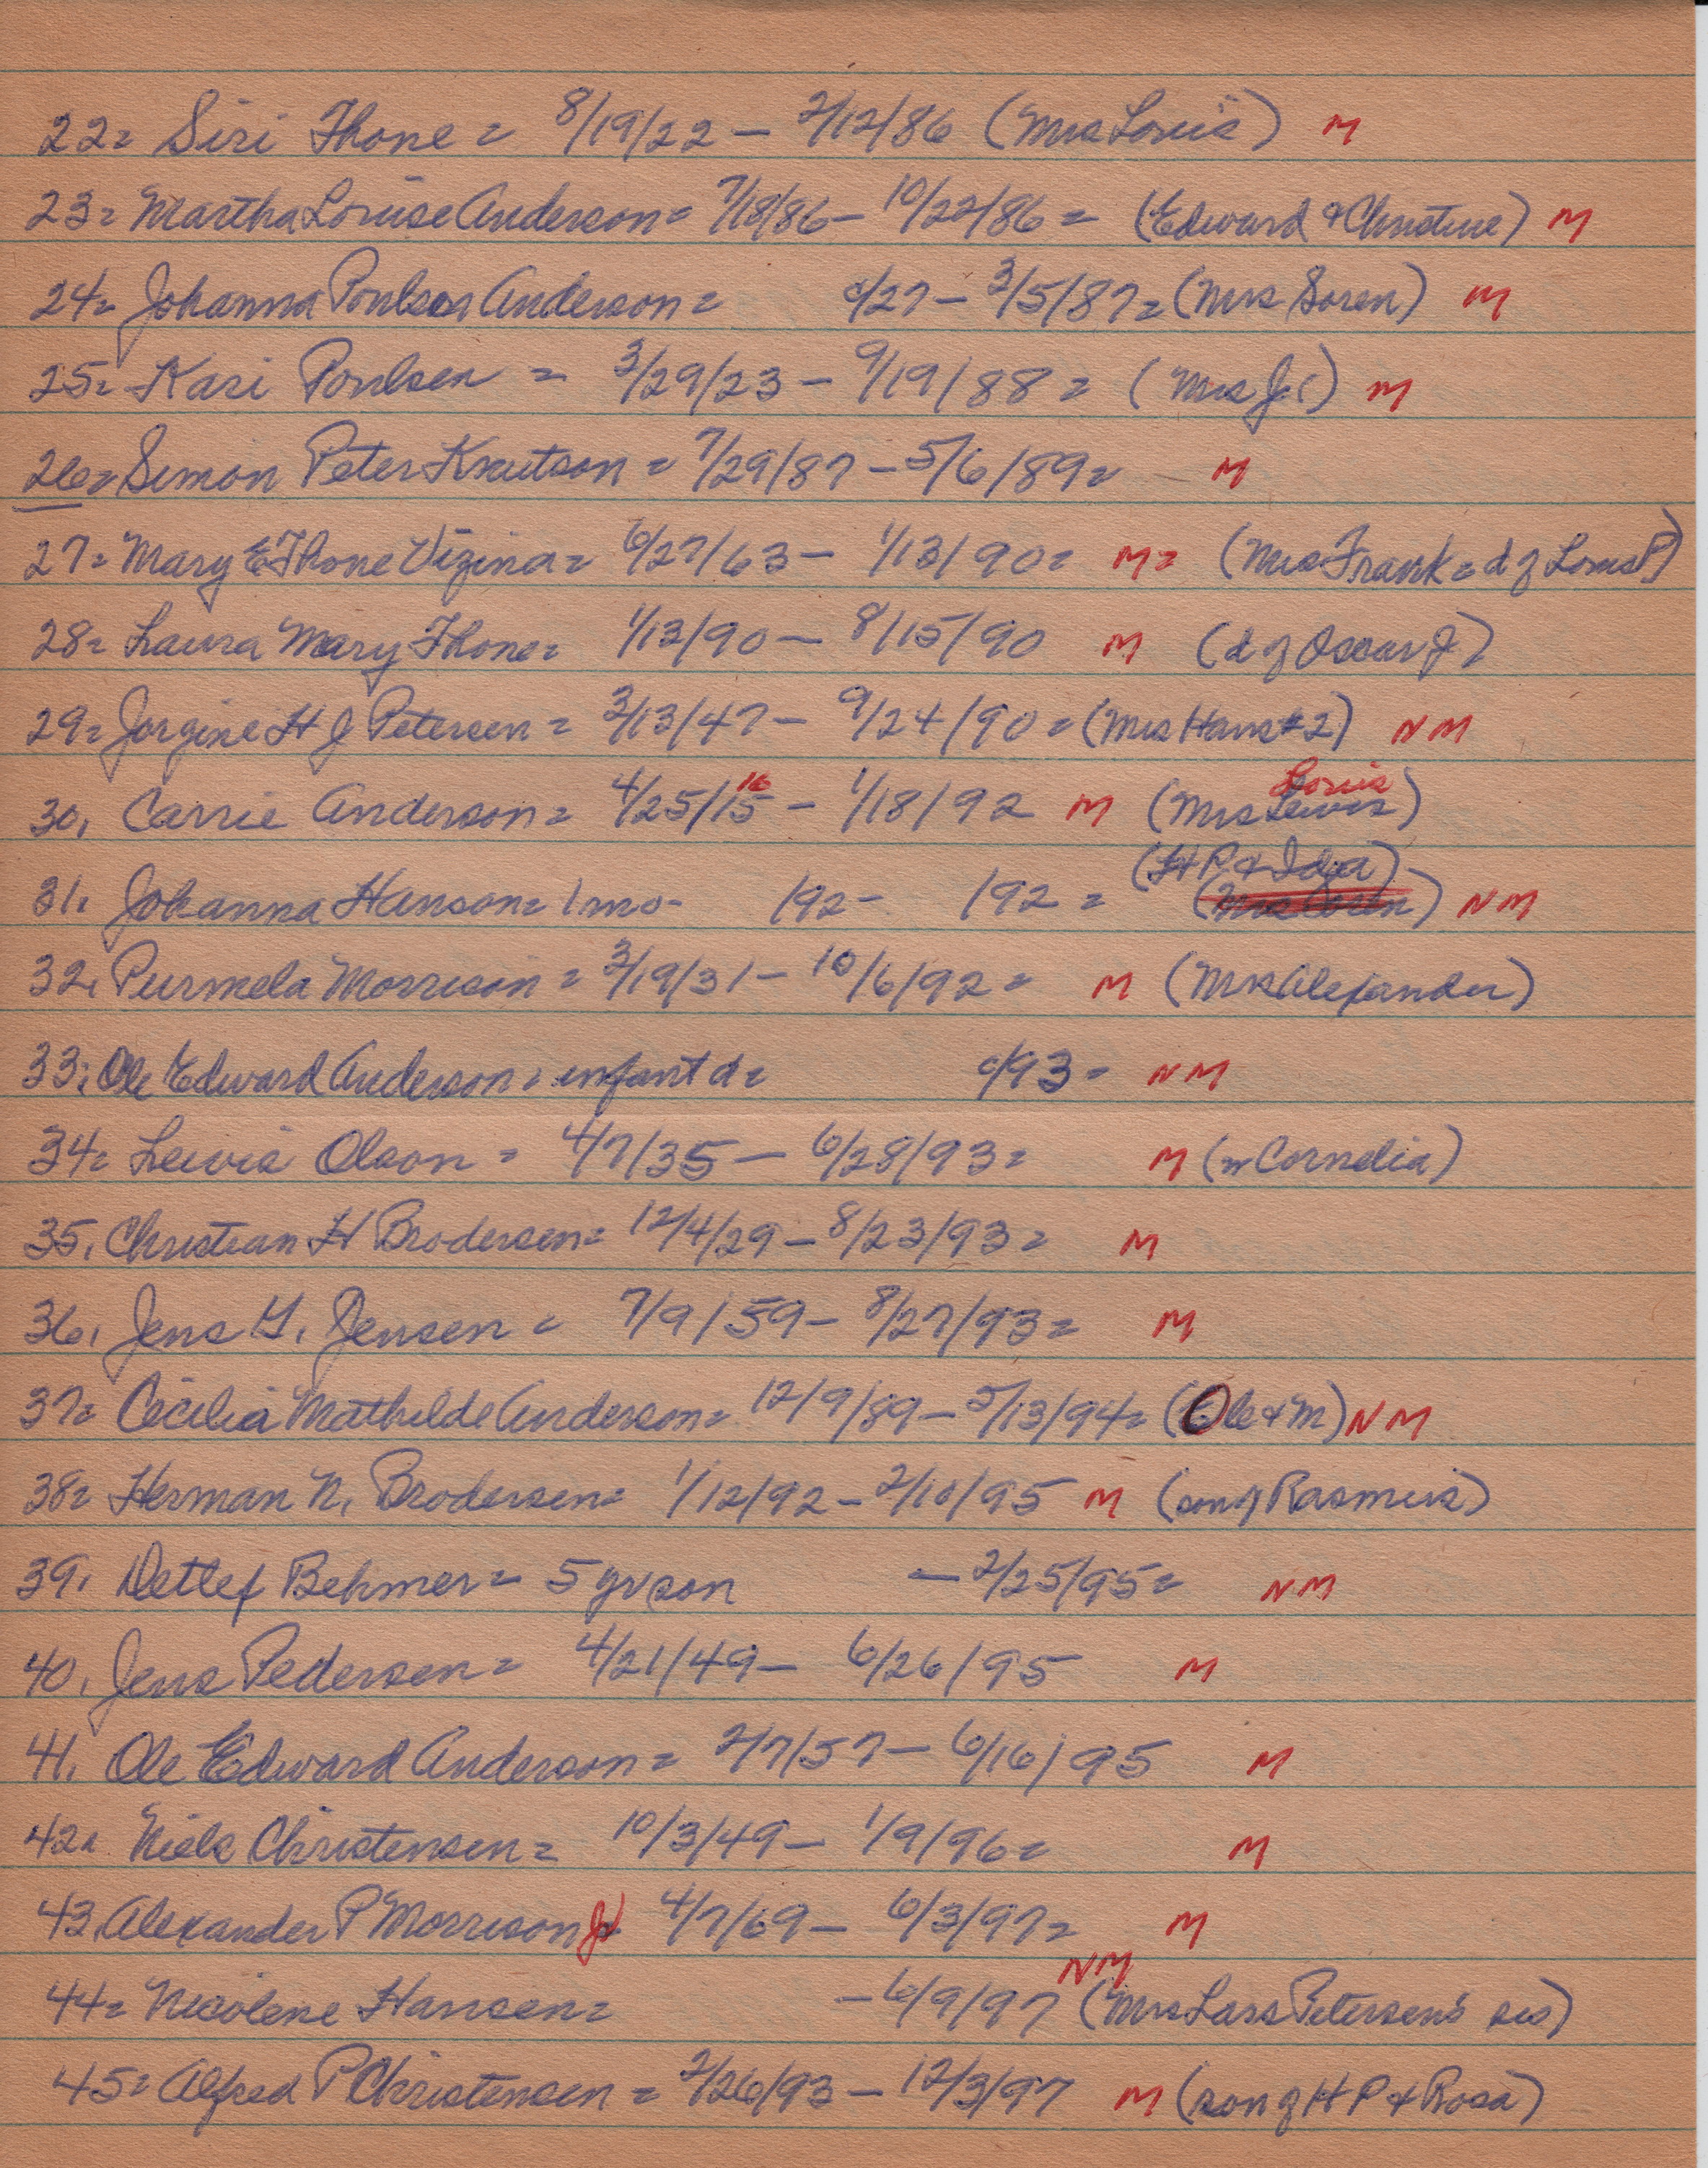 22= Siri Thone = 8/19/22 — 2/12/86 (Mrs Louis) M
23= Martha Louise Anderson= 7/18/86 — 10/22/86 = (Edward & Christine) M
24= Johanna Poulsen Anderson= c/27 — 3/5/87= (Mrs Soren) M
25= Kari Poulsen = 3/29/23 — 9/19/88 = (Mrs J C) M
26= Simon Peter Knutson = 7/29/87 — 5/6/89= M
27= Mary E Thone Vizina= 6/27/63 — 1/13/90= M= (Mrs Frank = d of Louis P)
28= Laura Mary Thone= 1/13/90 — 8/15/90 M (d of Oscar J)
29= Jorgine H J Petersen = 3/13/47 — 9/24/90 = (Mrs Hans #2) NM
Louis
30. Carrie Anderson= 4/25/15 16 — 1/18/92 M (Mrs Lewis)
(H P & Ida)
31. Johanna Hanson= 1 mo- /92 - /92 = (Mrs Soren) NM
32. Purmela Morrison = 3/19/31 — 10/6/92 = M (Mrs Alexander)
33: Ole Edward Anderson = infant d= c/93 = NM
34= Lewis Olson = 4/7/35 — 6/28/93= M (w Cornelia)
35. Christian H Brodersen= 12/4/29 — 8/23/93= M
36. Jens Y. Jensen = 7/9/59 — 8/27/93= M
37= Cecilia Mathilde Anderson= 12/9/89 — 5/13/94= (Ole & M) NM
38= Herman N. Brodersen= 1/12/92 — 2/10/95 M (son of Rasmus)
39. Detlef Behmer= 5 yr son — 2/25/95= NM
40. Jens Pedersen= 4/21/49 — 6/26/95 M
41. Ole Edward Anderson= 2/7/57 — 6/16/95 M
42. Niels Christensen= 10/3/49 — 1/9/96= M
43. Alexander P Morrison Jr 4/7/69 — 6/3/97= M
NM
44= Nicolene Hansen= — 6/9/97 (Mrs Lars Petersen's sis)
45= Alfred P Christensen = 2/26/93 — 12/3/97 M (son of H P & Rosa)